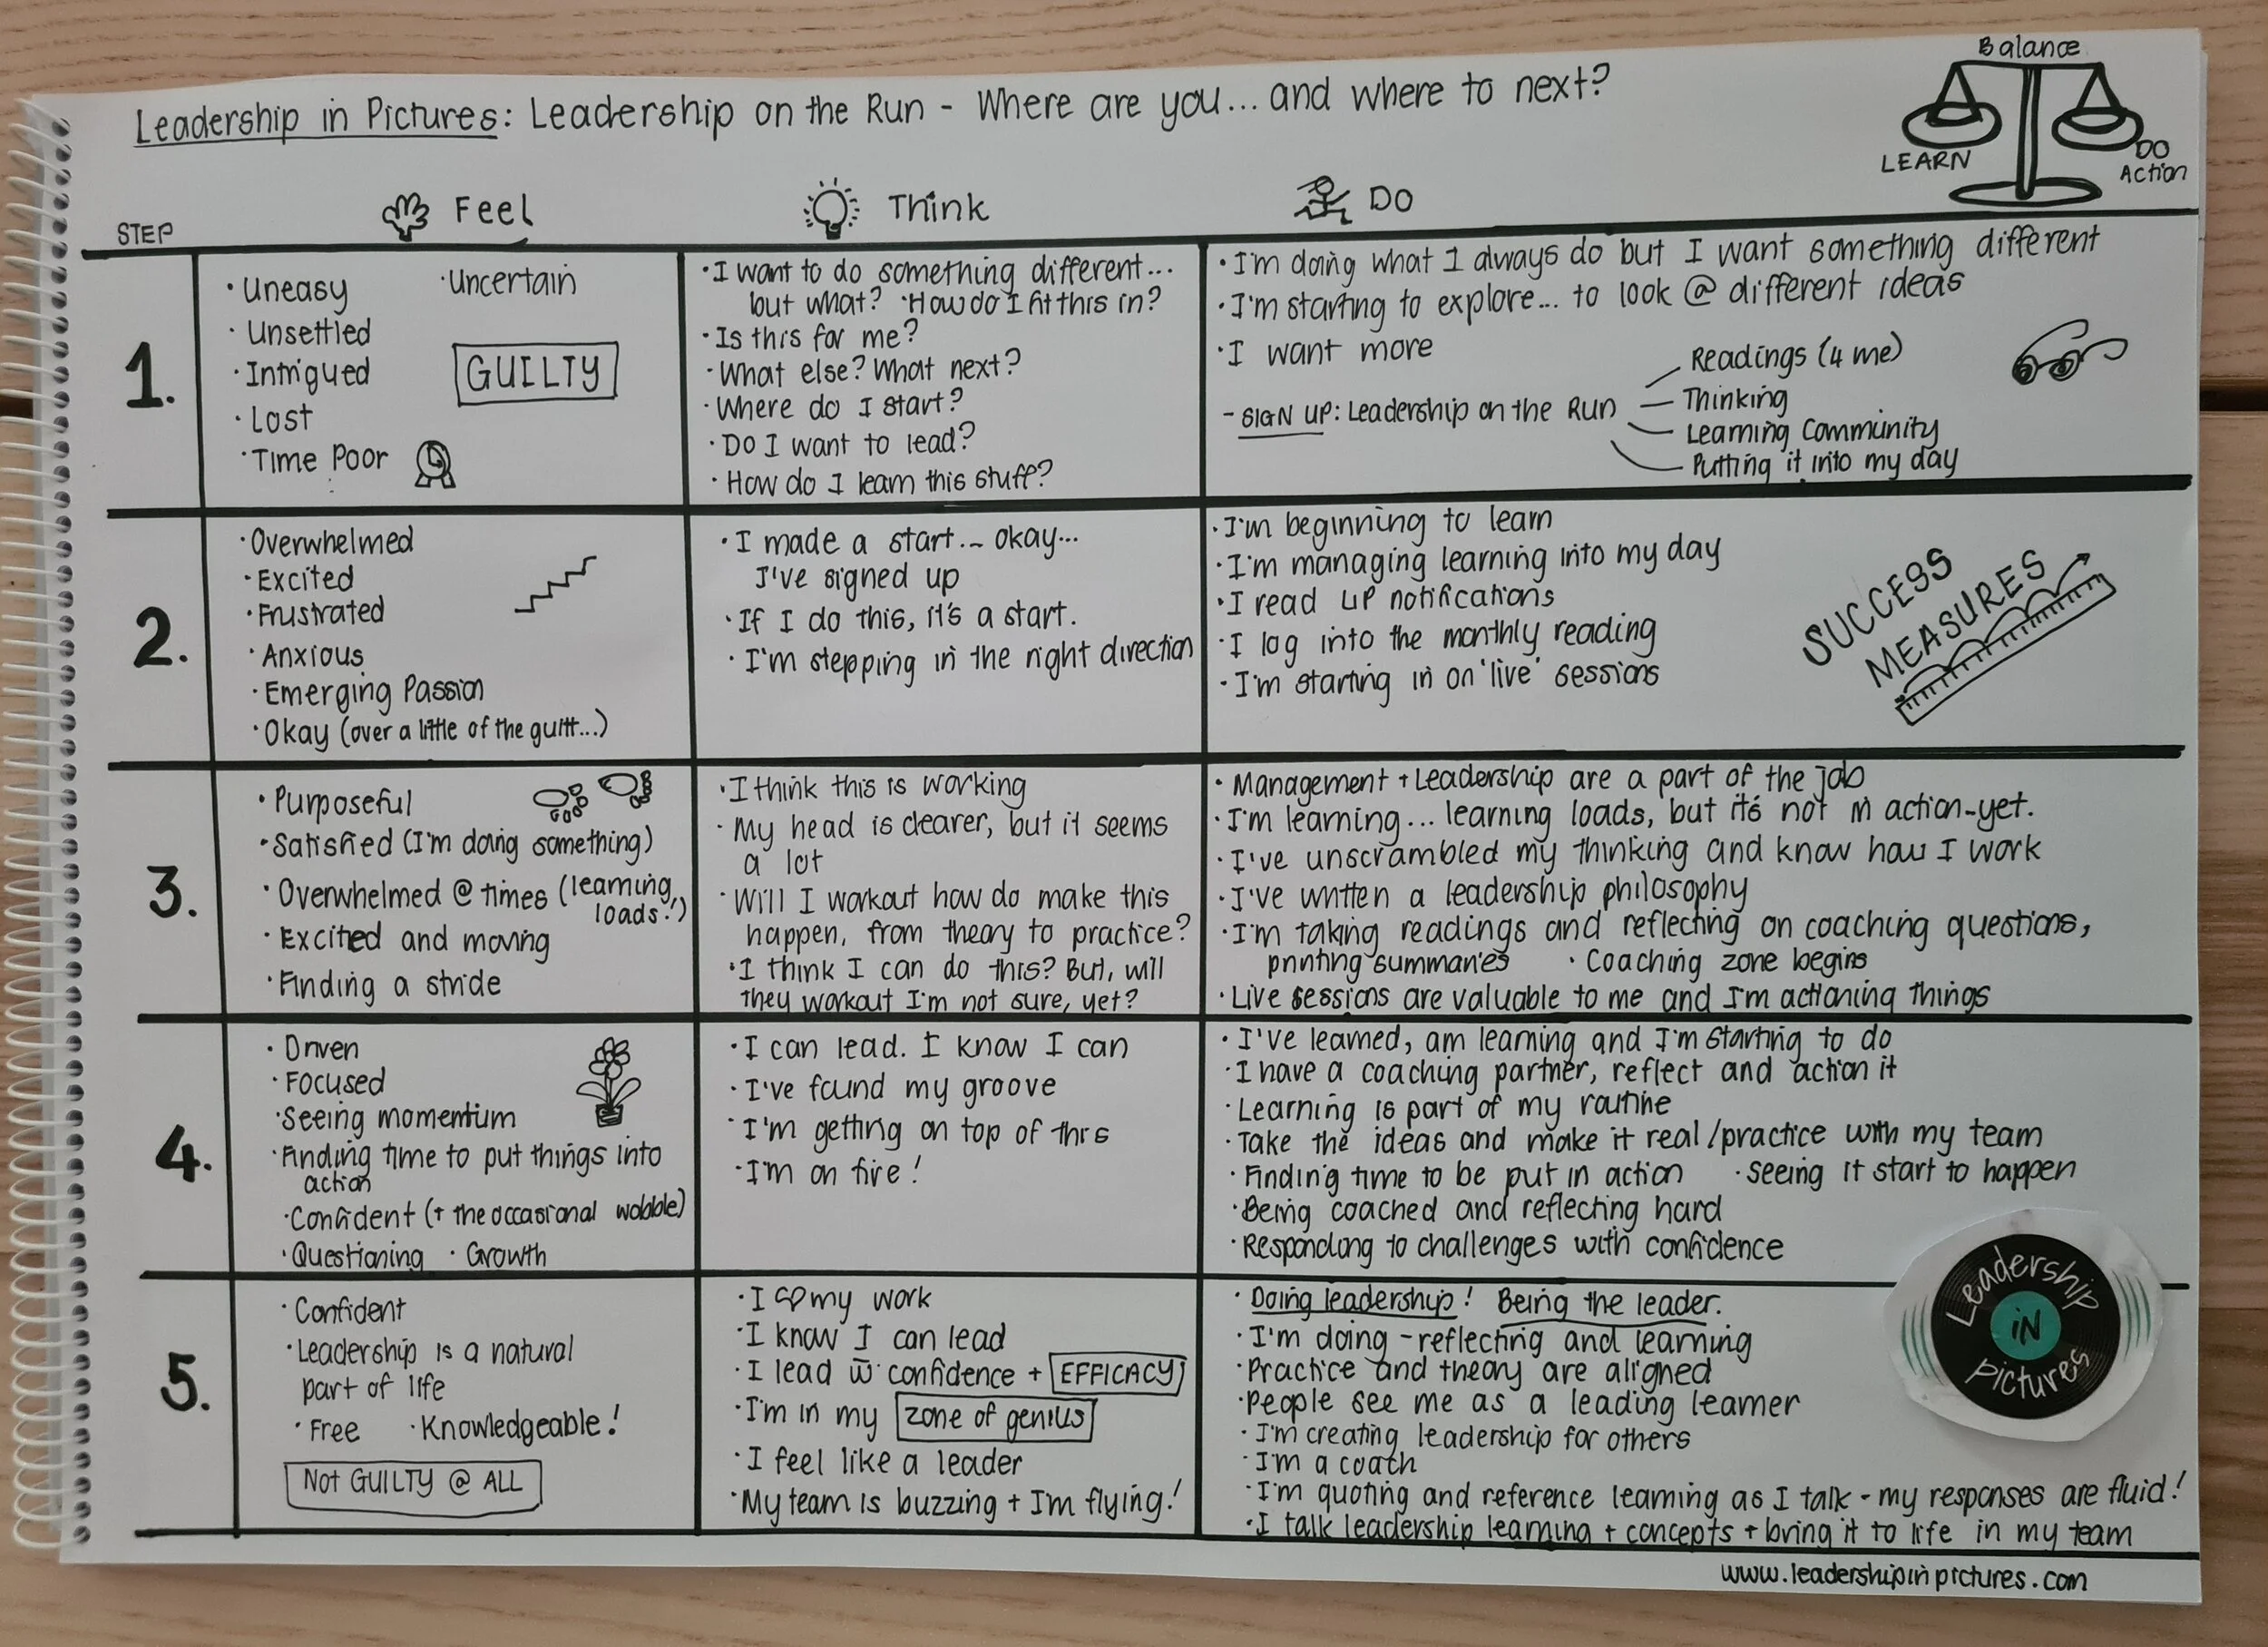 Leadership in Pictures: Leadership on the Run - Where are you... and where to next?
Balance
LEARN
DO
Action
STEP
Feel
Think
DO
1.
• Uneasy
• Uncertain
• Unsettled
• Intrigued
GUILTY
• Lost
• Time Poor
• I want to do something different...
but what? • How do I fit this in?
• Is this for me?
• What else? What next?
• Where do I start?
• Do I want to lead?
• How do I learn this stuff?
• I'm doing what I always do but I want something different
• I'm starting to explore... to look @ different ideas
• I want more
- SIGN UP: Leadership on the Run
Readings (4 me)
Thinking
Learning Community
Putting it into my day
2.
• Overwhelmed
• Excited
• Frustrated
• Anxious
• Emerging Passion
• Okay (over a little of the guilt...)
• I made a start... okay...
I've signed up
• If I do this, it's a start.
• I'm stepping in the right direction
• I'm beginning to learn
• I'm managing learning into my day
• I read LIP notifications
• I log into the monthly reading
• I'm starting in on 'live' sessions
SUCCESS
MEASURES
3.
• Purposeful
• Satisfied (I'm doing something)
• Overwhelmed @ times (learning,
loads!)
• Excited and moving
• Finding a stride
• I think this is working
• My head is clearer, but it seems
a lot
• Will I workout how do make this
happen, from theory to practice?
• I think I can do this? But, will
they workout I'm not sure, yet?
• Management + Leadership are a part of the job
• I'm learning... learning loads, but it's not in action-yet.
• I've unscrambled my thinking and know how I work
• I've written a leadership philosophy
• I'm taking readings and reflecting on coaching questions,
printing summaries • Coaching zone begins
• Live sessions are valuable to me and I'm actioning things
4.
• Driven
• Focused
• Seeing momentum
• Finding time to put things into
action
• Confident (+ the occasional wobble)
• Questioning • Growth
• I can lead. I know I can
• I've found my groove
• I'm getting on top of this
• I'm on fire!
• I've learned, am learning and I'm starting to do
• I have a coaching partner, reflect and action it
• Learning is part of my routine
• Take the ideas and make it real/practice with my team
• Finding time to be put in action • seeing it start to happen
• Being coached and reflecting hard
• Responding to challenges with confidence
5.
• Confident
• Leadership is a natural
part of life
• Free • Knowledgeable!
NOT GUILTY @ ALL
• I ♡ my work
• I know I can lead
• I lead w̄ confidence + EFFICACY
• I'm in my zone of genius
• I feel like a leader
• My team is buzzing + I'm flying!
• Doing leadership! Being the leader.
• I'm doing - reflecting and learning
• Practice and theory are aligned
• People see me as a leading learner
• I'm creating leadership for others
• I'm a coach
• I'm quoting and reference learning as I talk - my responses are fluid!
• I talk leadership learning + concepts + bring it to life in my team
Leadership
IN
Pictures
www.leadershipinpictures.com